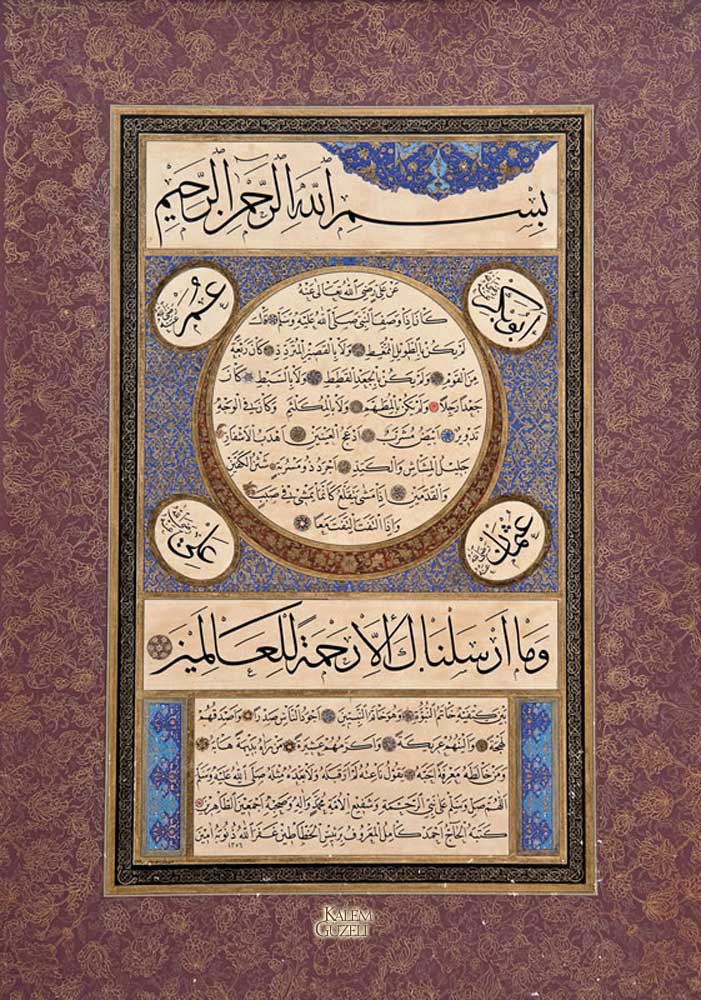 بسم الله الرحمن الرحيم
ابوبكر رضي الله عنه
عمر رضي الله عنه
عن علي رضي الله تعالى عنه
كان إذا وصف النبي صلى الله عليه وسلم قال
لم يكن بالطويل الممغط ولا بالقصير المتردد وكان ربعة
من القوم ولم يكن بالجعد القطط ولا بالسبط كان
جعدا رجلا ولم يكن بالمطهم ولا بالمكلثم وكان في الوجه
تدوير ابيض مشرب ادعج العينين اهدب الاشفار
جليل المشاش والكتد اجرد ذو مسربة شثن الكفين
والقدمين اذا مشى يتقلع كأنما يمشي في صبب
واذا التفت التفت معا
عثمان رضي الله عنه
علي رضي الله عنه
وما ارسلناك الا رحمة للعالمين
بين كتفيه خاتم النبوة وهو خاتم النبيين اجود الناس صدرا واصدقهم
لهجة والينهم عريكة واكرمهم عشيرة من راه بديهة هابه
ومن خالطه معرفة احبه يقول ناعته لم ار قبله ولا بعده مثله صلى الله عليه وسلم
اللهم صل وسلم على نبي الرحمة وشفيع الامة محمد واله وصحبه اجمعين الطاهرين
كتبه الحاج احمد كامل المعروف برئيس الخطاطين غفر الله ذنوبه امين
١٣٥٦
KALEM
GÜZELİ